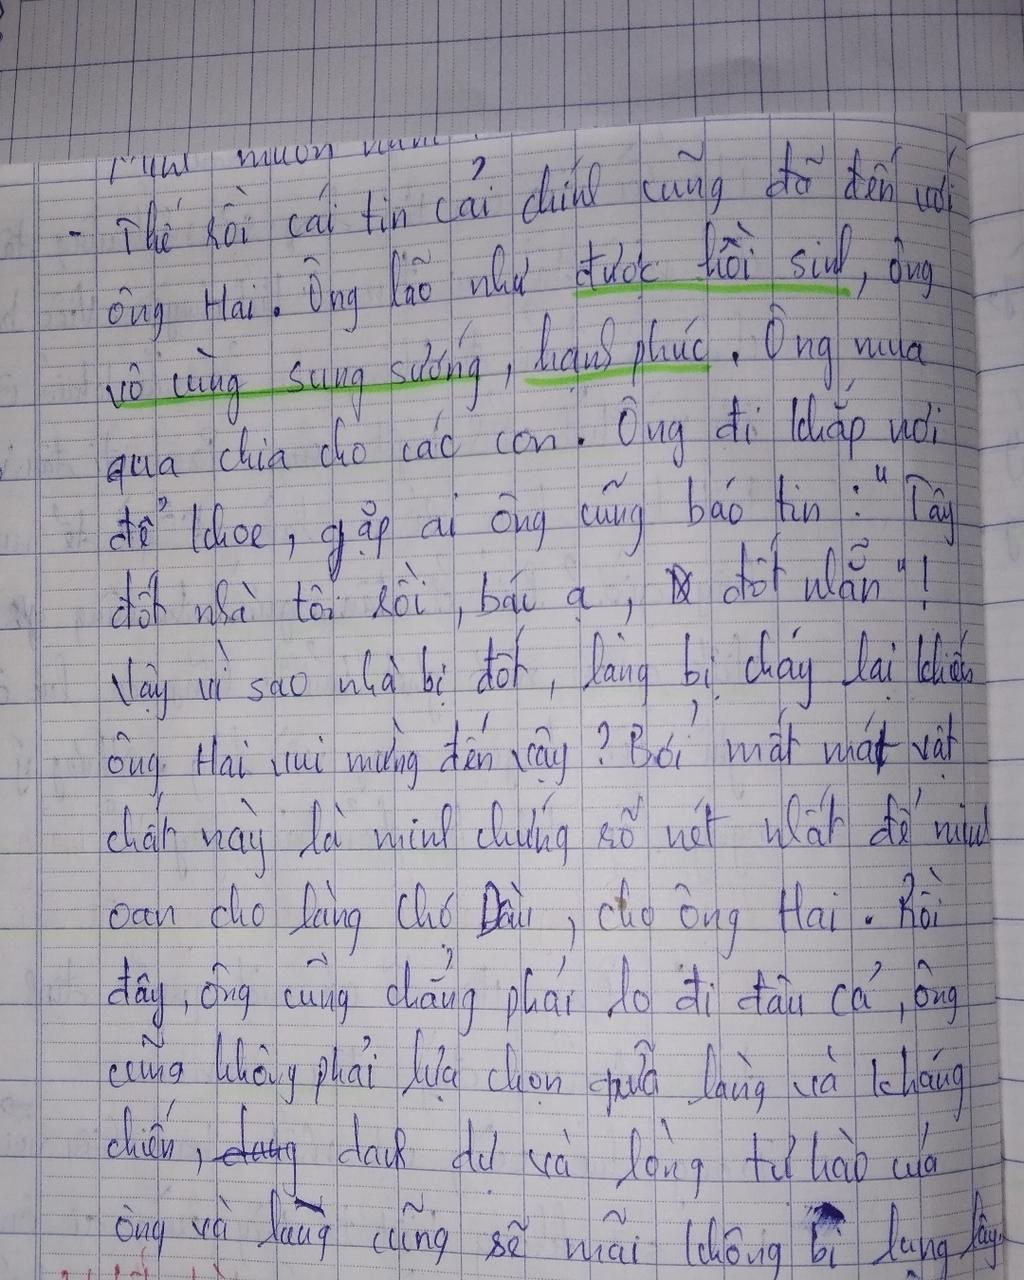 muôn
- Thế rồi cái tin cải chính cũng đã đến với
ông Hai. Ông lão như được hồi sinh, ông
vô cùng sung sướng, hạnh phúc. Ông mua
quà chia cho các con. Ông đi khắp nơi
để khoe, gặp ai ông cũng báo tin: "Tây
đốt nhà tôi rồi, bác ạ, đốt nhẵn"!
Vậy vì sao nhà bị đốt, làng bị cháy lại khiến
ông Hai vui mừng đến vậy? Bởi mất mát vật
chất này là minh chứng rõ nét nhất để minh
oan cho làng Chợ Dầu, cho ông Hai. Rồi
đây, ông cũng chẳng phải lo đi đâu cả, ông
cũng không phải lựa chọn giữa làng và kháng
chiến, danh dự và lòng tự hào của
ông và làng cũng sẽ mãi không bị lung lay